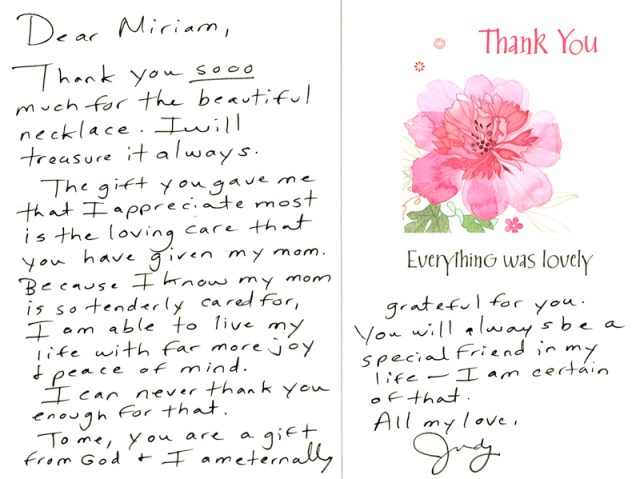 Dear Miriam,
Thank you sooo
much for the beautiful
necklace. I will
treasure it always.
The gift you gave me
that I appreciate most
is the loving care that
you have given my mom.
Because I know my mom
is so tenderly cared for,
I am able to live my
life with far more joy
+ peace of mind.
I can never thank you
enough for that.
To me, you are a gift
from God + I am eternally
Thank You
Everything was lovely
grateful for you.
You will always be a
special friend in my
life — I am certain
of that.
All my love,
Judy